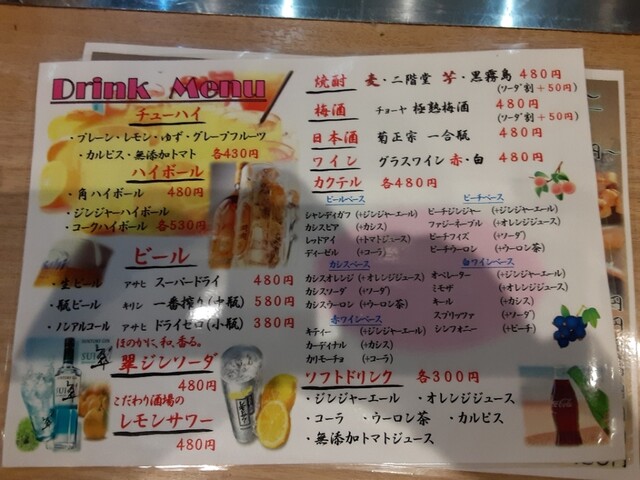 Drink Menu
チューハイ
・プレーン・レモン・ゆず・グレープフルーツ
・カルピス・無添加トマト 各430円
ハイボール
・角ハイボール 480円
・ジンジャーハイボール
・コークハイボール 各530円
ビール
・生ビール アサヒ スーパードライ 480円
・瓶ビール キリン 一番搾り(中瓶) 580円
・ノンアルコール アサヒ ドライゼロ(小瓶) 380円
ほのかに、和、香る。
翠ジンソーダ
480円
こだわり酒場の
レモンサワー
480円
焼酎 麦・二階堂 芋・黒霧島 480円
(ソーダ割+50円)
梅酒 チョーヤ 極熟梅酒 480円
(ソーダ割+50円)
日本酒 菊正宗 一合瓶 480円
ワイン グラスワイン 赤・白 480円
カクテル 各480円
ビールベース
シャンディガフ (+ジンジャーエール)
カシスビア (+カシス)
レッドアイ (+トマトジュース)
ディーゼル (+コーラ)
カシスベース
カシスオレンジ (+オレンジジュース)
カシスソーダ (+ソーダ)
カシスウーロン (+ウーロン茶)
赤ワインベース
キティー (+ジンジャーエール)
カーディナル (+カシス)
カリモーチョ (+コーラ)
ピーチベース
ピーチジンジャー (+ジンジャーエール)
ファジーネーブル (+オレンジジュース)
ピーチフィズ (+ソーダ)
ピーチウーロン (+ウーロン茶)
白ワインベース
オペレーター (+ジンジャーエール)
ミモザ (+オレンジジュース)
キール (+カシス)
スプリッツァ (+ソーダ)
シンフォニー (+ピーチ)
ソフトドリンク 各300円
・ジンジャーエール ・オレンジジュース
・コーラ ・ウーロン茶 ・カルピス
・無添加トマトジュース